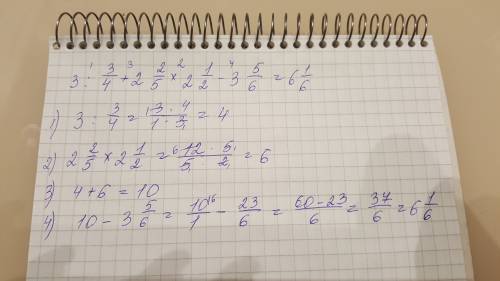 3 :¹ 3/4 +³ 2 2/5 ×² 2 1/2 -⁴ 3 5/6 = 6 1/6
1) 3 : 3/4 = (3 · 4)/(1 · 3) = 4
2) 2 2/5 × 2 1/2 = (12 · 5)/(5 · 2) = 6
3) 4 + 6 = 10
4) 10 - 3 5/6 = 10/1 - 23/6 = (60 - 23)/6 = 37/6 = 6 1/6